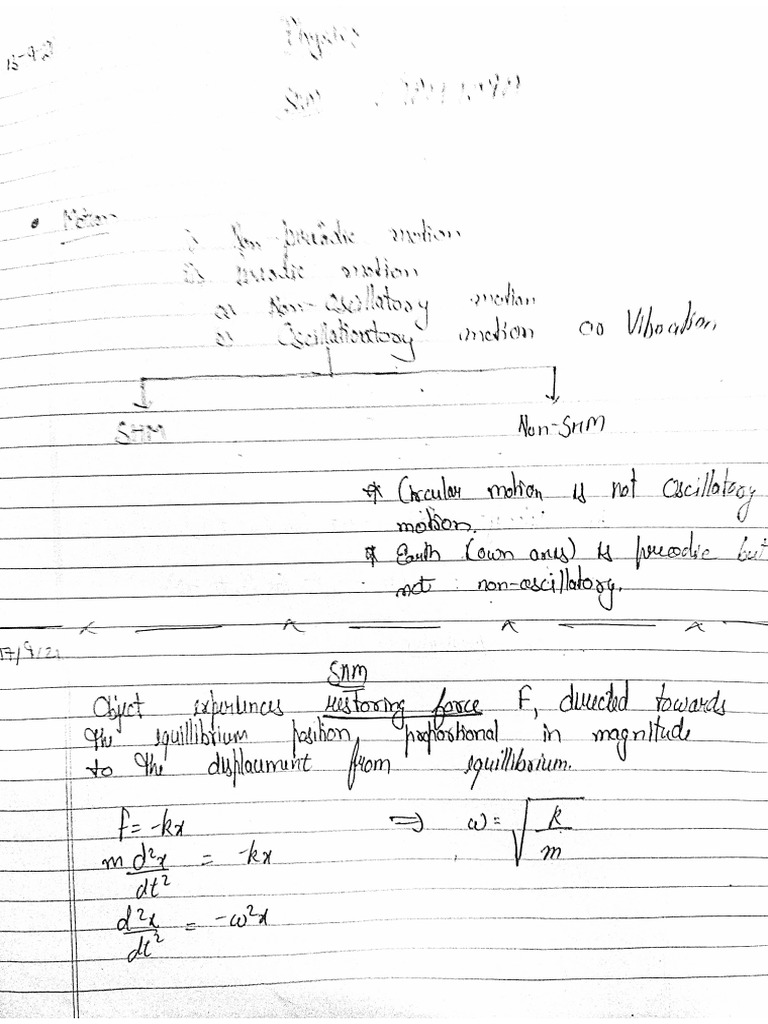 15-9-21
Physics
SHM
• Motion
i) Non-preodic motion
ii) preodic motion
a) Non-oscillatory motion
b) Oscillationtory motion or Vibration
SHM
Non-SHM
* Circular motion is not oscillatory
motion.
* Earth (own axes) is preodic but
not non-oscillatory.
17/9/21
SHM
Object experiences restoring force F, directed towards
the equillibrium position, proportional in magnitude
to the displacment from equillibrium.
f = -kx ⇒ ω = √(k/m)
m d²x/dt² = -kx
d²x/dt² = -ω²x